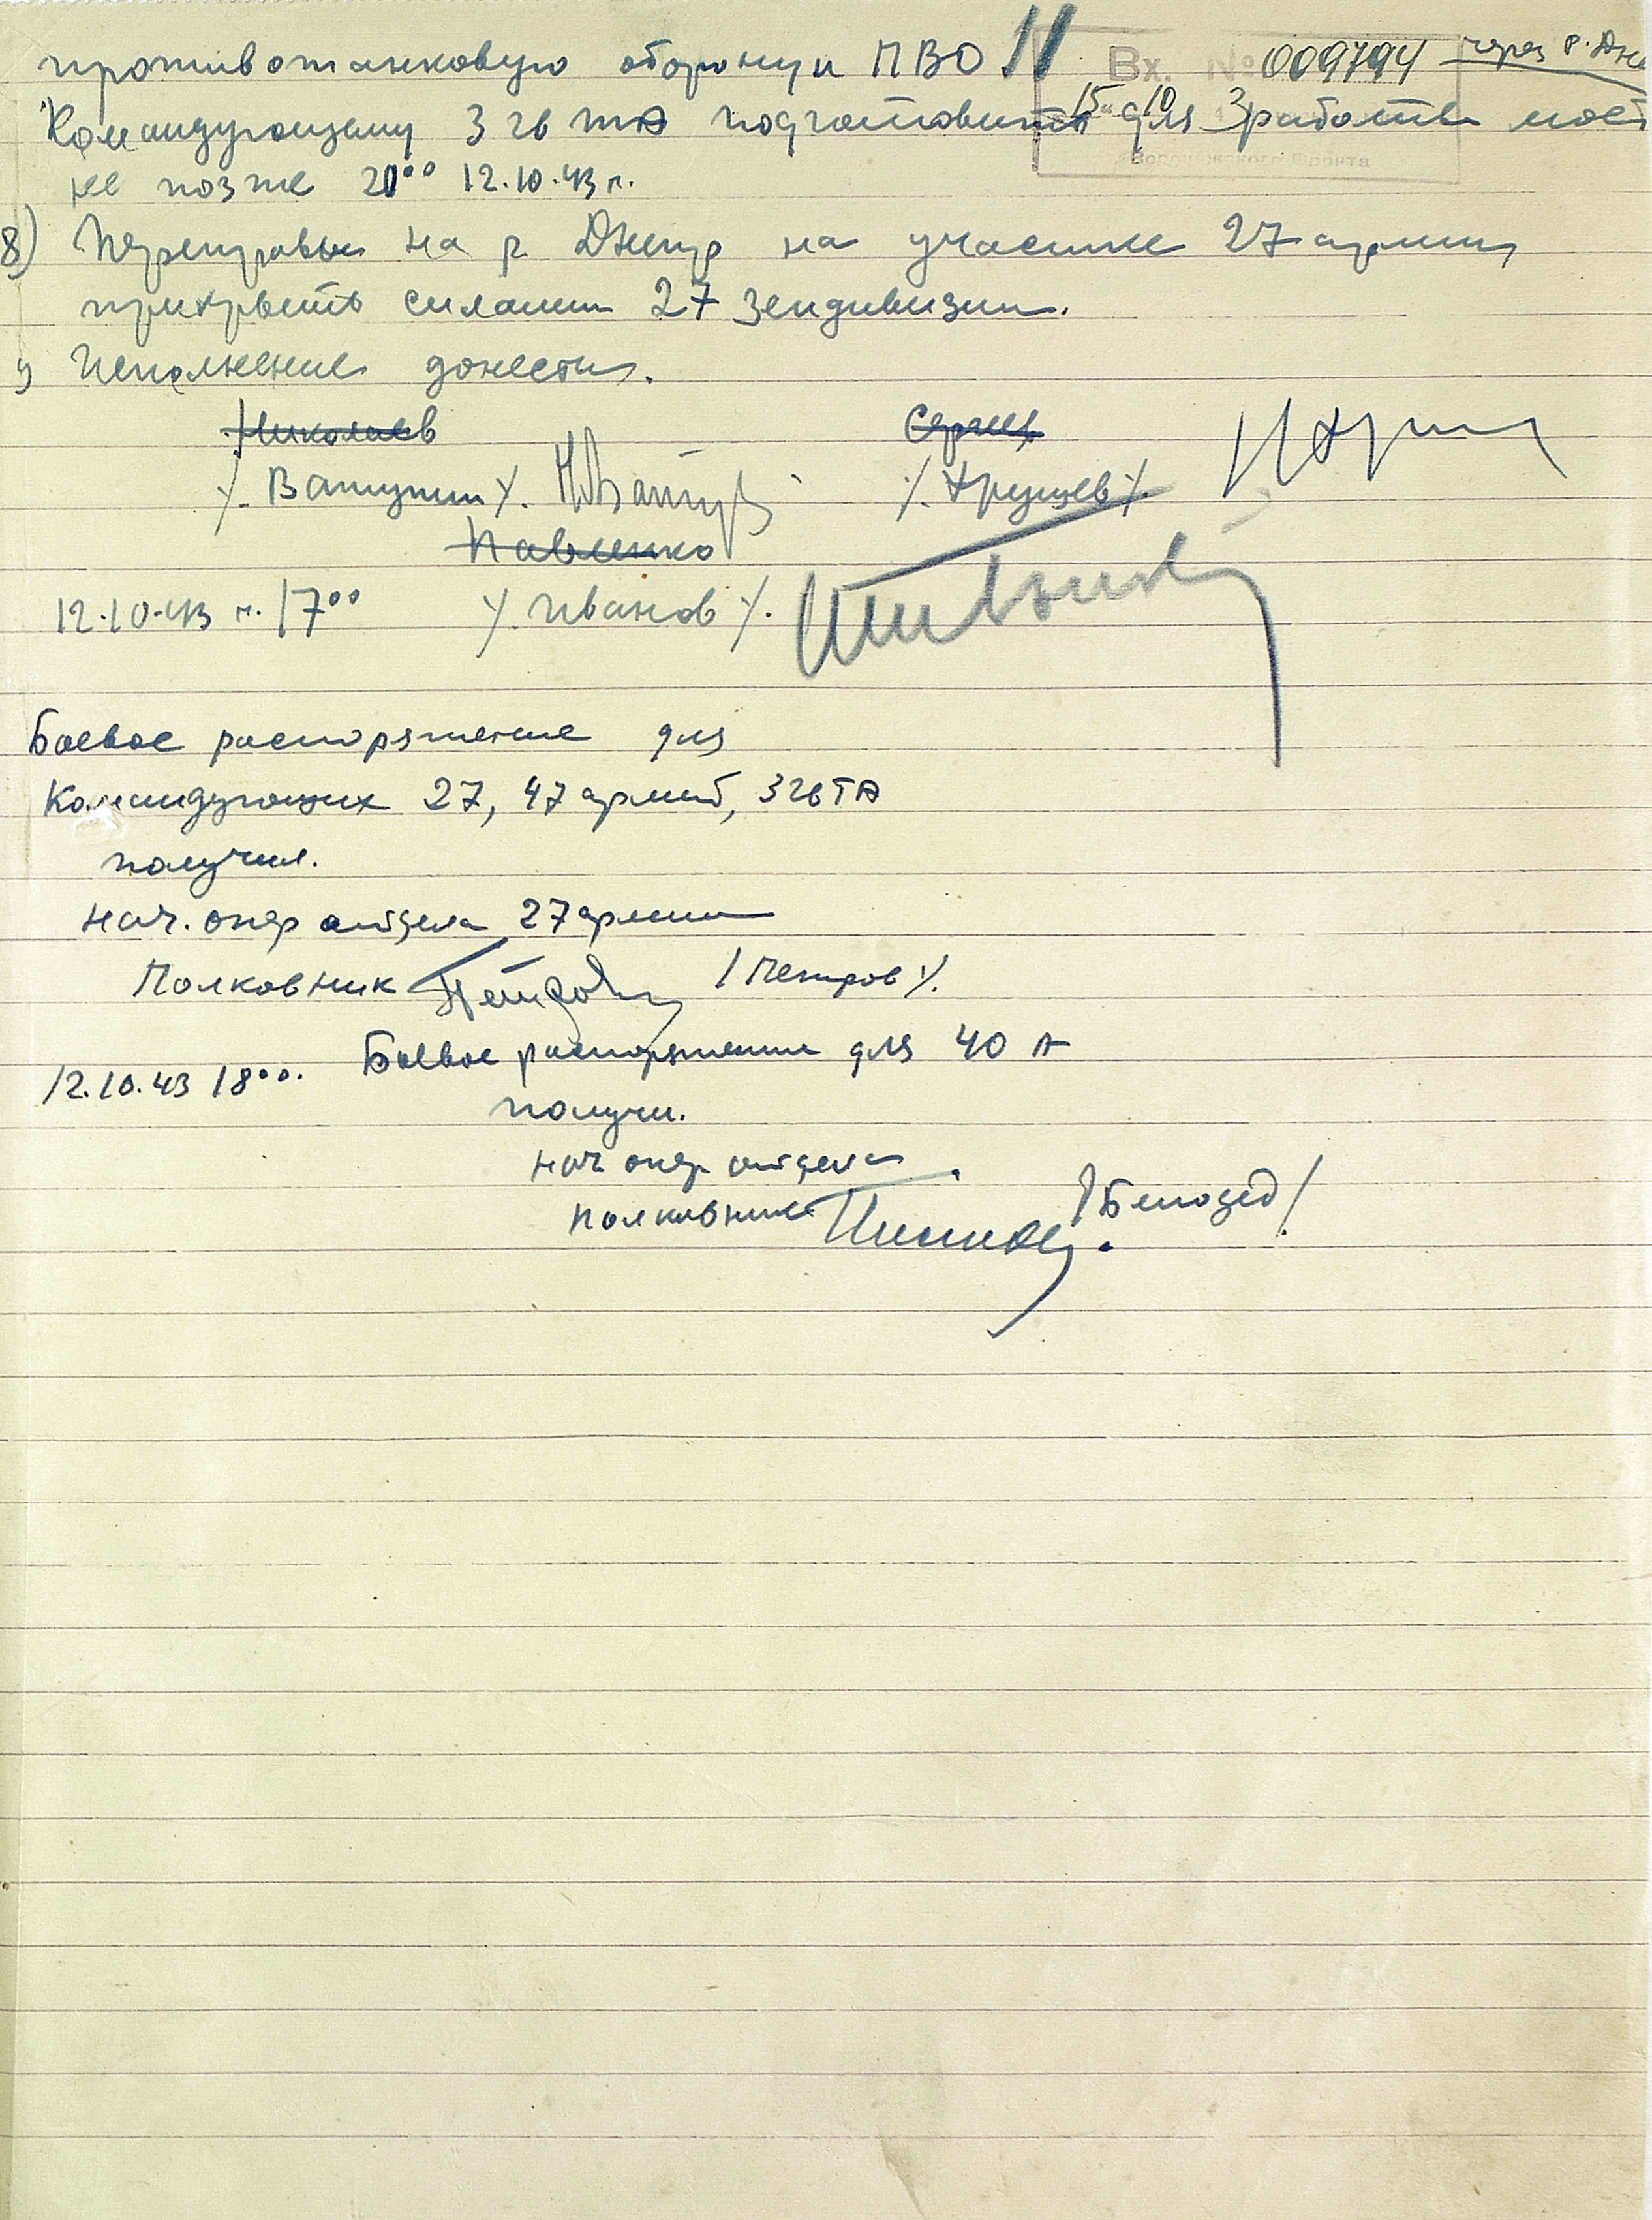 противотанковую оборону и ПВО 11
Вх. № 009794 через р. Дне
Командующему 3 гв ТА подготовить для работы мост
15 10 3
Воронежского Фронта
не позже 20⁰⁰ 12.10.43 г.
8) Переправы на р. Днепр на участке 27 армии
прикрыть силами 27 зендивизии.
9) Исполнение донести.
Николаев Сергеев
/. Ватутин /. /. Хрущев /.
Павленко
12.10.43 г. 17⁰⁰ /. Иванов /.
Боевое распоряжение для
Командующих 27, 47 армий, 3 гв ТА
получил.
нач. опер отдела 27 армии
Полковник Петров / Петров /.
Боевое распоряжение для 40 А
12.10.43 18⁰⁰.
получил.
нач опер отдела
полковник